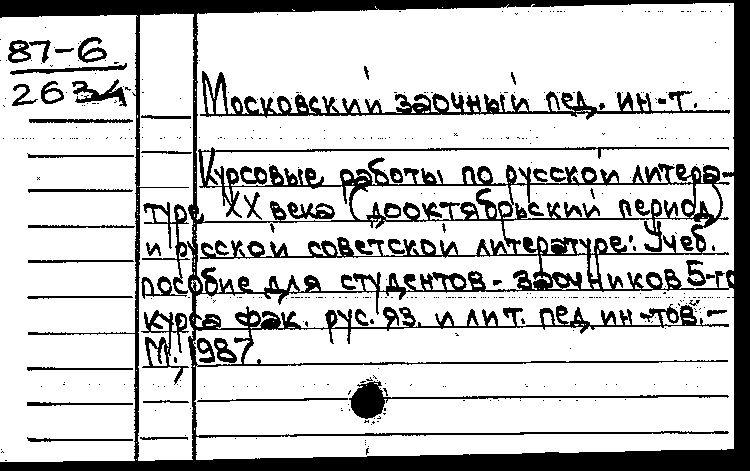 87-6
2634
Московский заочный пед. ин-т.
Курсовые работы по русской литера-
туре XX века (дооктябрьский период)
и русской советской литературе: Учеб.
пособие для студентов-заочников 5-го
курса фак. рус. яз. и лит. пед. ин-тов. -
М., 1987.